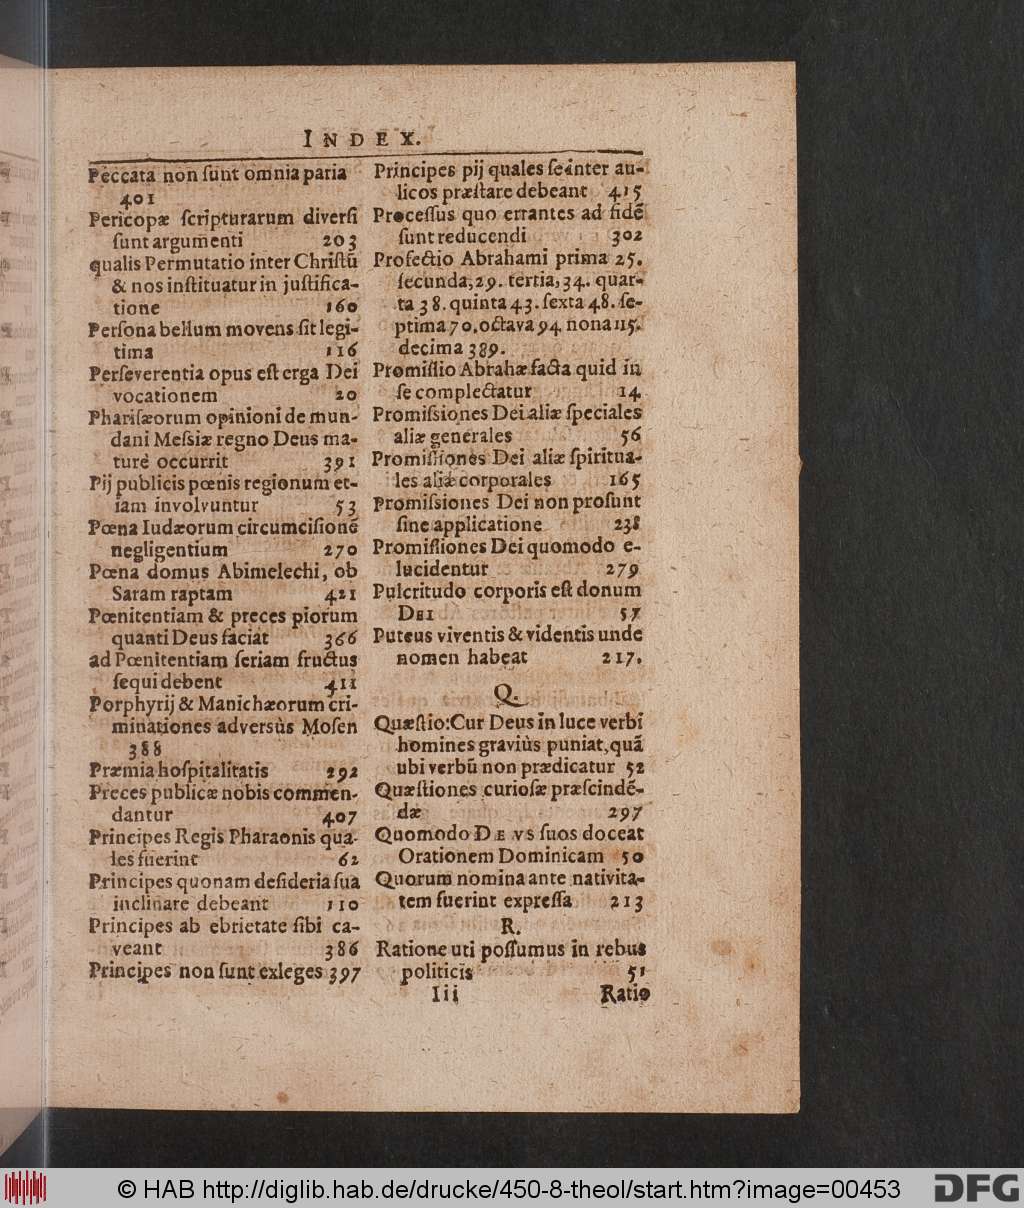 INDEX.
Peccata non ſunt omnia paria
401
Pericopæ ſcripturarum diverſi
ſunt argumenti 203
qualis Permutatio inter Chriſtū
& nos inſtituatur in juſtifica-
tione 160
Perſona bellum movens ſit legi-
tima 116
Perſeverentia opus eſt erga Dei
vocationem 20
Phariſæorum opinioni de mun-
dani Meſsiæ regno Deus ma-
turè occurrit 391
Pij publicis pœnis regionum et-
iam involvuntur 53
Pœna Iudæorum circumciſionē
negligentium 270
Pœna domus Abimelechi, ob
Saram raptam 421
Pœnitentiam & preces piorum
quanti Deus faciat 366
ad Pœnitentiam ſeriam fructus
ſequi debent 411
Porphyrij & Manichæorum cri-
minationes adversùs Moſen
388
Præmia hoſpitalitatis 292
Preces publicæ nobis commen-
dantur 407
Principes Regis Pharaonis qua-
les fuerint 62
Principes quonam deſideria ſua
inclinare debeant 110
Principes ab ebrietate ſibi ca-
veant 386
Principes non ſunt exleges 397
Principes pij quales ſe inter au-
licos præſtare debeant 415
Proceſſus quo errantes ad fidē
ſunt reducendi 302
Profectio Abrahami prima 25.
ſecunda, 29. tertia, 34. quar-
ta 38. quinta 43. ſexta 48. ſe-
ptima 70. octava 94. nona 115.
decima 389.
Promiſſio Abrahæ facta quid in
ſe complectatur 14
Promiſsiones Dei aliæ ſpeciales
aliæ generales 56
Promiſſiones Dei aliæ ſpiritua-
les aliæ corporales 165
Promiſsiones Dei non proſunt
ſine applicatione 238
Promiſſiones Dei quomodo e-
lucidentur 279
Pulcritudo corporis eſt donum
DEI 57
Puteus viventis & videntis unde
nomen habeat 217.
Q.
Quæſtio: Cur Deus in luce verbi
homines graviùs puniat, quā
ubi verbū non prædicatur 52
Quæſtiones curioſæ præſcindē-
dæ 297
Quomodo DEVS ſuos doceat
Orationem Dominicam 50
Quorum nomina ante nativita-
tem fuerint expreſſa 213
R.
Ratione uti poſſumus in rebus
politicis 51
Iii Ratio
© HAB http://diglib.hab.de/drucke/450-8-theol/start.htm?image=00453
DFG